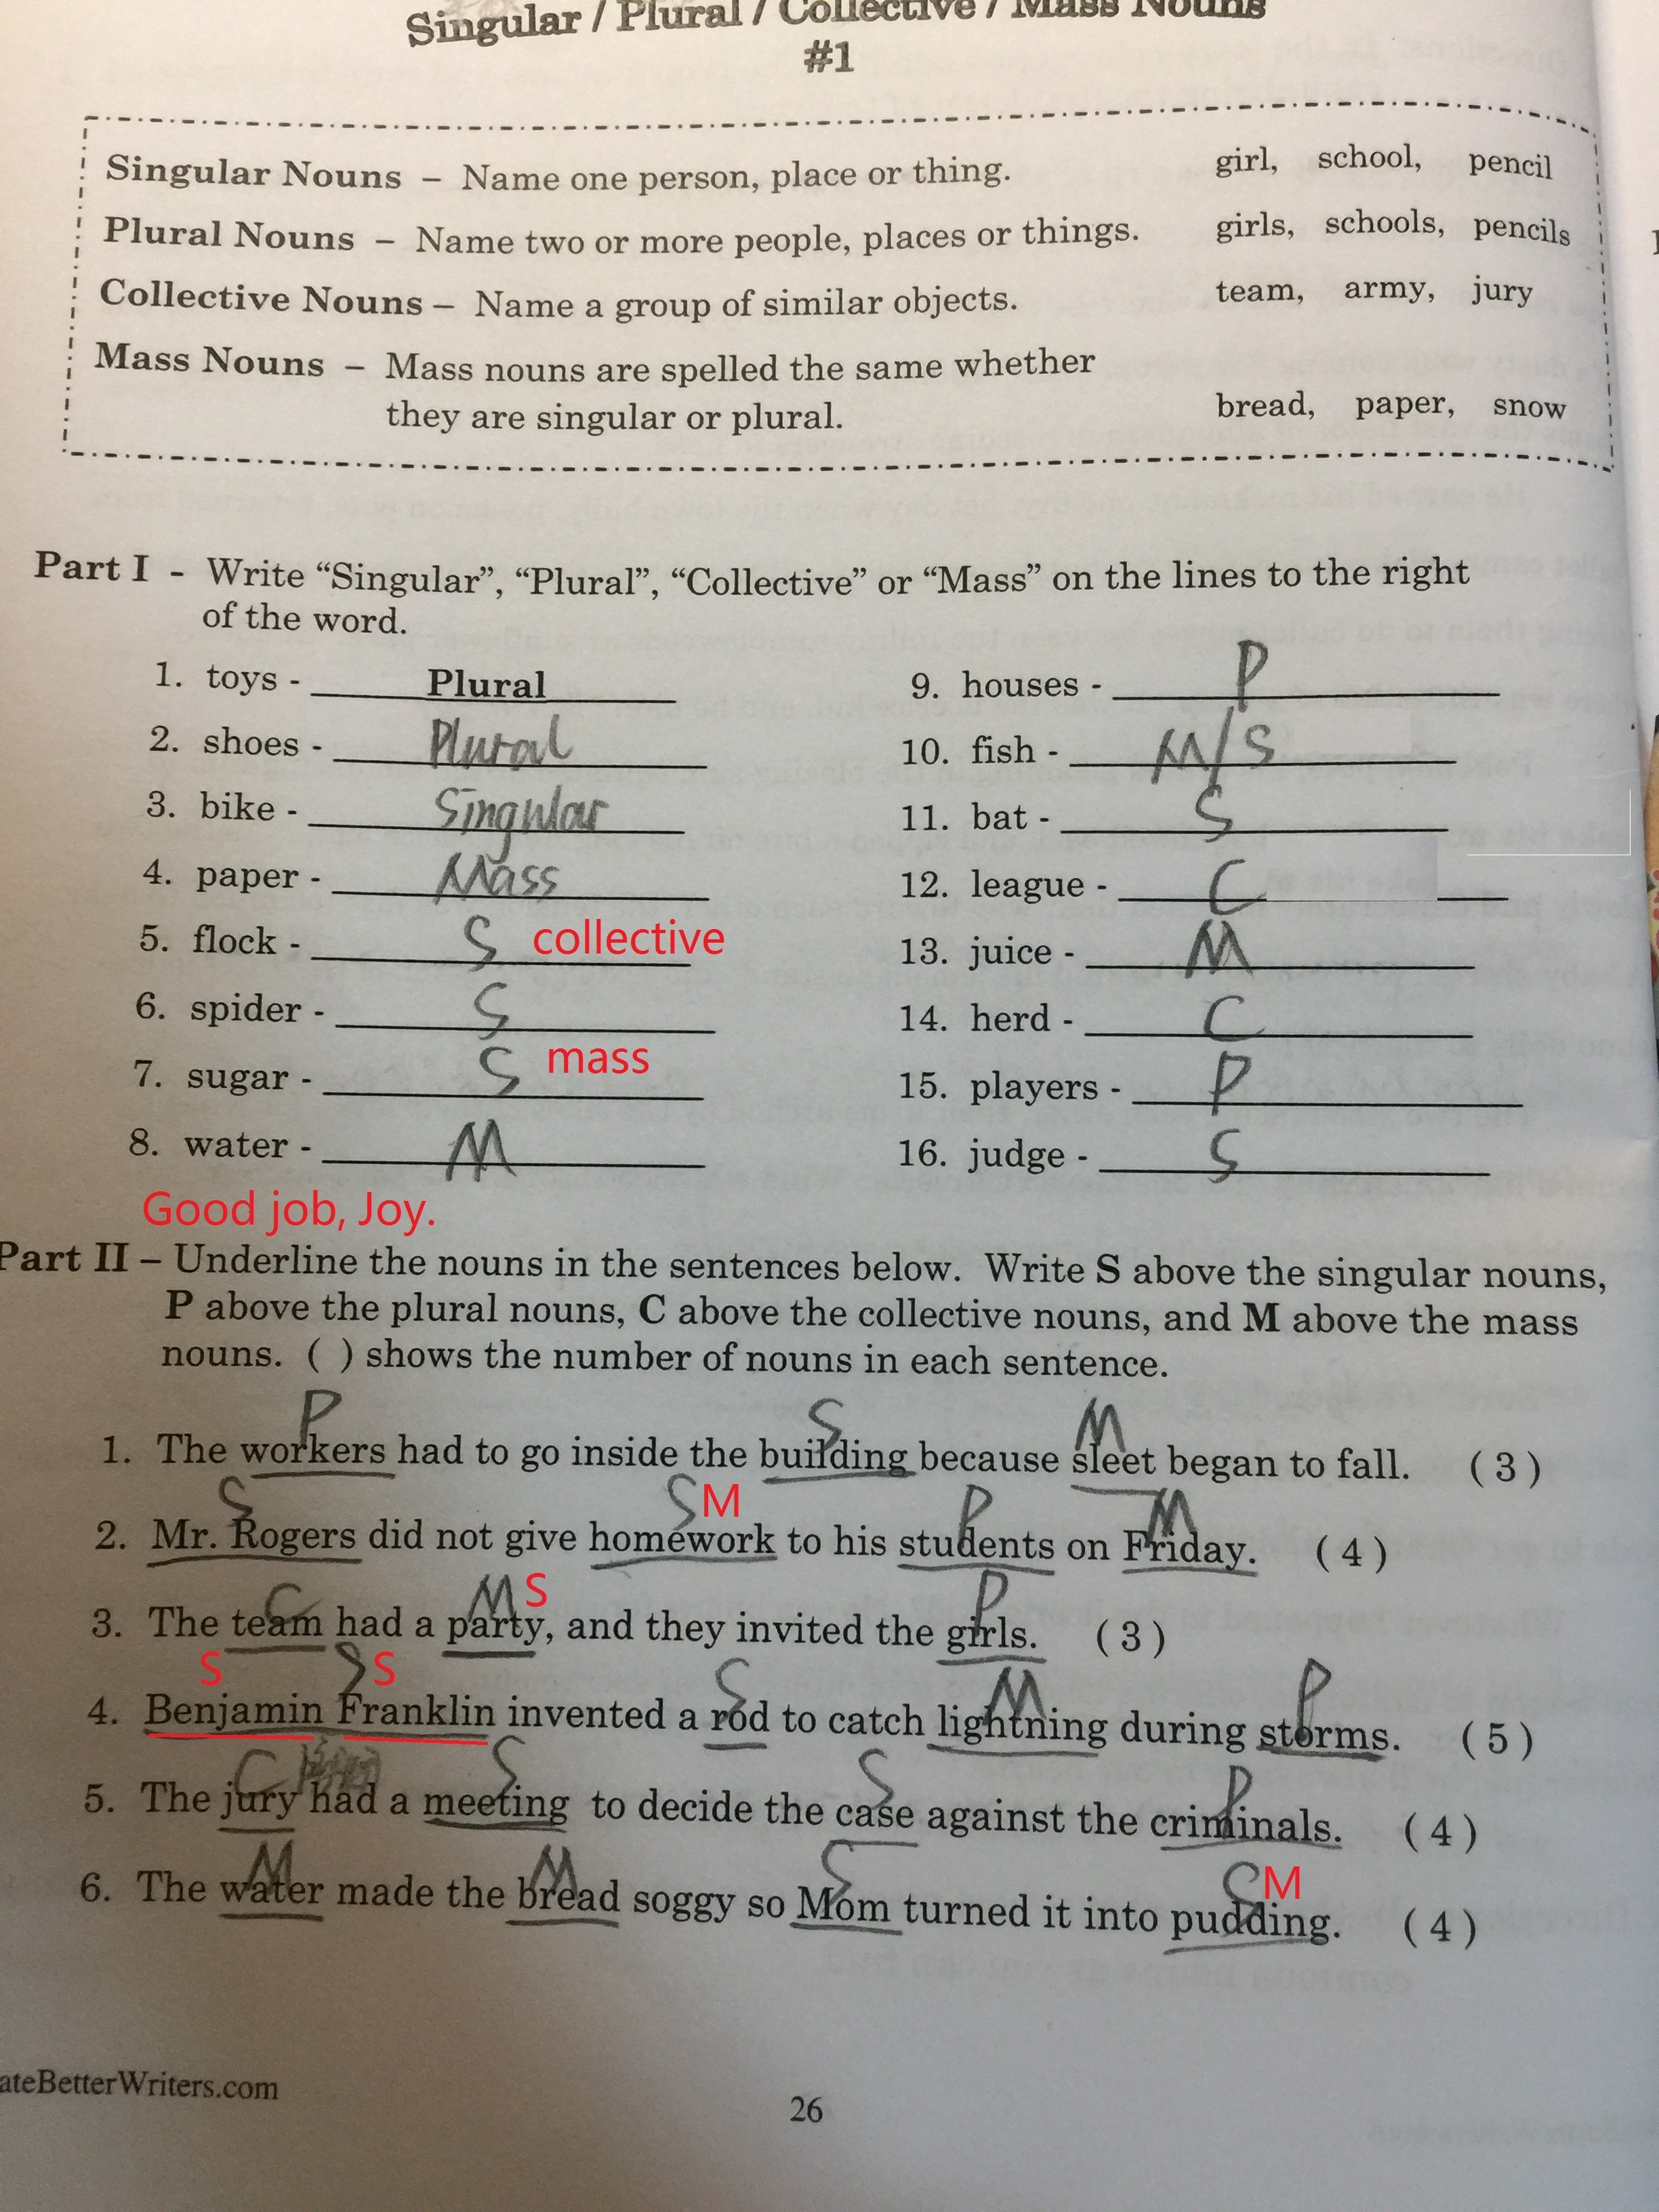 Singular / Plural / Collective / Mass Nouns
#1
Singular Nouns – Name one person, place or thing. girl, school, pencil
Plural Nouns – Name two or more people, places or things. girls, schools, pencils
Collective Nouns – Name a group of similar objects. team, army, jury
Mass Nouns – Mass nouns are spelled the same whether
they are singular or plural. bread, paper, snow
Part I - Write “Singular”, “Plural”, “Collective” or “Mass” on the lines to the right
of the word.
1. toys - Plural
2. shoes - Plural
3. bike - Singular
4. paper - Mass
5. flock - S collective
6. spider - S
7. sugar - S mass
8. water - M
9. houses - P
10. fish - M/S
11. bat - S
12. league - C
13. juice - M
14. herd - C
15. players - P
16. judge - S
Good job, Joy.
Part II – Underline the nouns in the sentences below. Write S above the singular nouns,
P above the plural nouns, C above the collective nouns, and M above the mass
nouns. ( ) shows the number of nouns in each sentence.
P S M
1. The workers had to go inside the building because sleet began to fall. ( 3 )
S S M P M
2. Mr. Rogers did not give homework to his students on Friday. ( 4 )
C M S P
3. The team had a party, and they invited the girls. ( 3 )
S S S S M P
4. Benjamin Franklin invented a rod to catch lightning during storms. ( 5 )
C S S P
5. The jury had a meeting to decide the case against the criminals. ( 4 )
M M S S M
6. The water made the bread soggy so Mom turned it into pudding. ( 4 )
ateBetterWriters.com
26